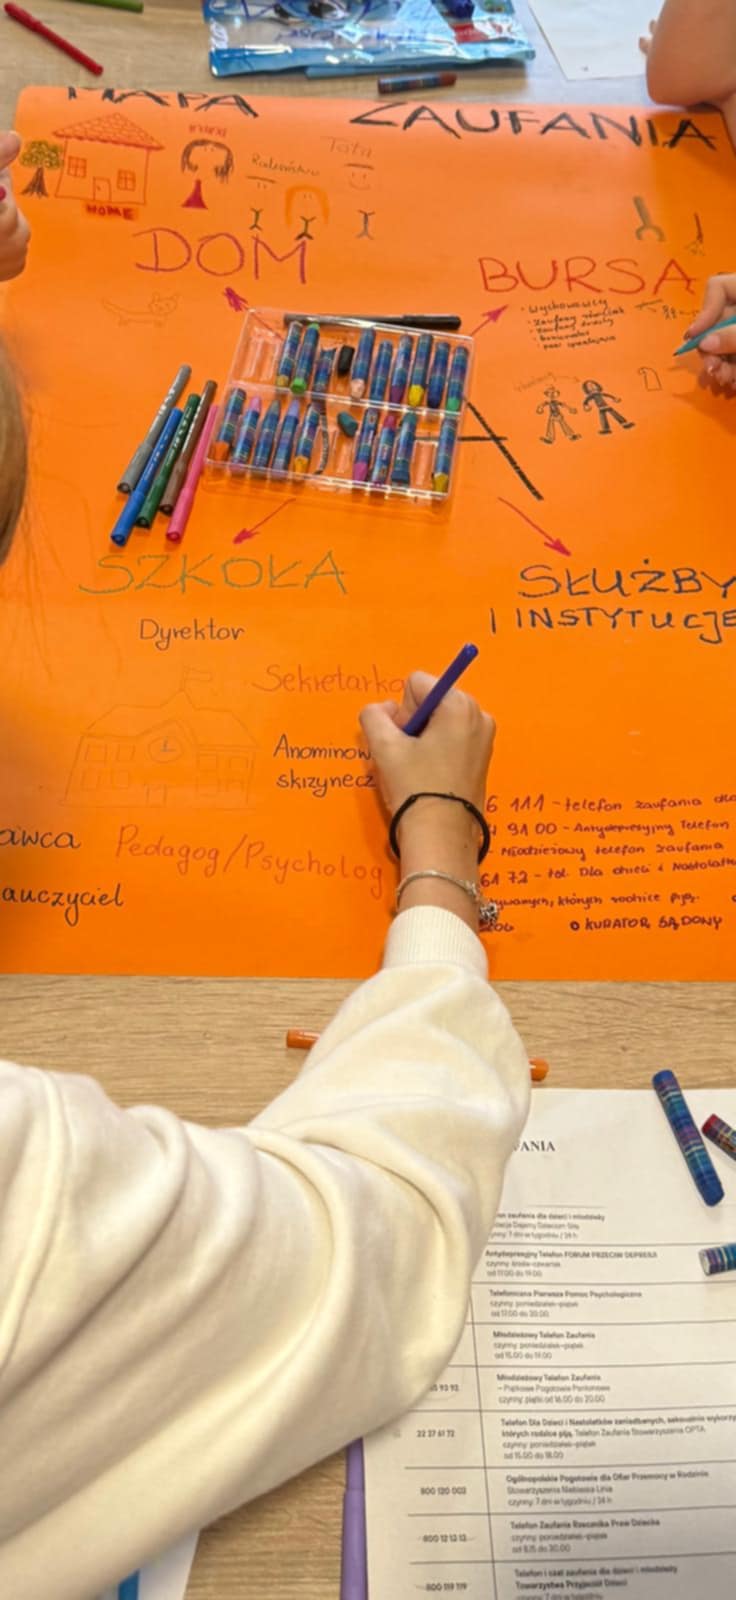 MAPA ZAUFANIA
Rodzeństwo
Tata
HOME
DOM
BURSA
• Wychowawcy
A
SZKOŁA
SŁUŻBY
I INSTYTUCJE
Dyrektor
Sekretarka
Anominow
skizynecz
awca
Pedagog/Psycholog
auczyciel
6 111 - telefon zaufania dla
91 00 - Antydepresyjny Telefon
- Młodzieżowy telefon zaufania
61 72 - tel. Dla dzieci i Nastolatk
ywanych, których rodzice piją.
O KURATOR SĄDOWY
ANIA
fon zaufania dla dzieci i młodzieży
czynny: 7 dni w tygodniu / 24 h
Antydepresyjny Telefon FORUM PRZECIW DEPRESJI
czynny: środa-czwartek
od 17.00 do 19.00
Telefoniczna Pierwsza Pomoc Psychologiczna
czynny: poniedziałek-piątek
od 17.00 do 20.00
Młodzieżowy Telefon Zaufania
czynny: poniedziałek-piątek
od 15.00 do 19.00
Młodzieżowy Telefon Zaufania
– Piątkowe Pogotowie
czynny: piątki od 16.00 do 20.00
22 27 61 72
Telefon Dla Dzieci i Nastolatków zaniedbanych, seksualnie wykorzy
których rodzice piją, Telefon Zaufania Stowarzyszenia OPTA
czynny: poniedziałek-piątek
od 15.00 do 18.00
800 120 002
Ogólnopolskie Pogotowie dla Ofiar Przemocy w Rodzinie
Stowarzyszenia Niebieska Linia
czynny: 7 dni w tygodniu / 24 h
800 12 12 12
Telefon Zaufania Rzecznika Praw Dziecka
czynny: poniedziałek-piątek
od 8.15 do 20.00
800 119 119
Telefon i czat zaufania dla dzieci i młodzieży
Towarzystwa Przyjaciół Dzieci
czynny: 7 dni w tygodniu